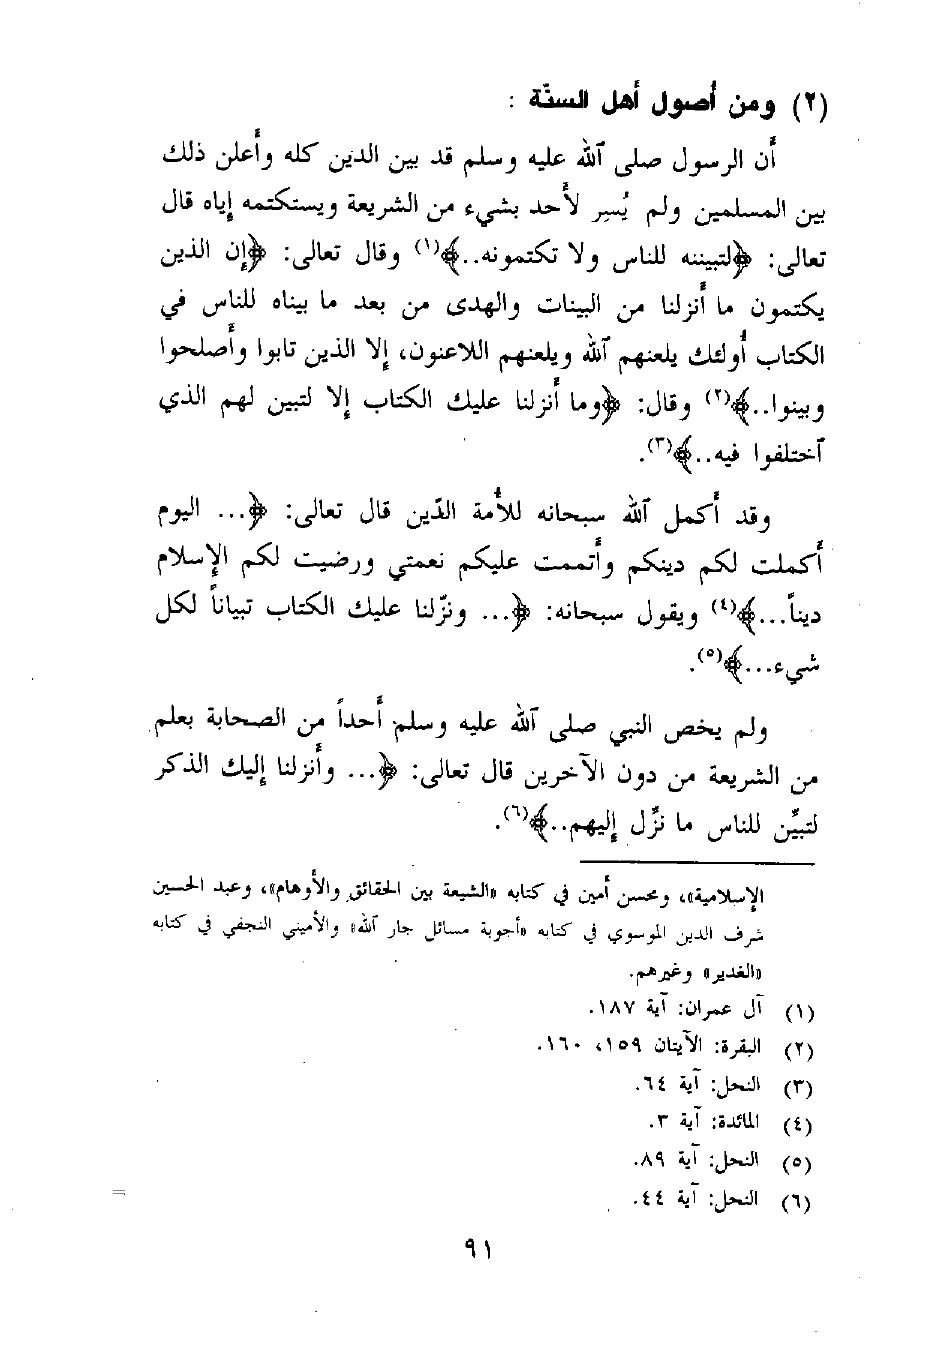 (٢) ومن أصول أهل السنّة :
أن الرسول صلى ٱلله عليه وسلم قد بين الدين كله وأعلن ذلك
بين المسلمين ولم يُسِر لأحد بشيء من الشريعة ويستكتمه إياه قال
تعالى: ﴿لتبيننه للناس ولا تكتمونه..﴾(١) وقال تعالى: ﴿إن الذين
يكتمون ما أنزلنا من البينات والهدى من بعد ما بيناه للناس في
الكتاب أولئك يلعنهم ٱلله ويلعنهم اللاعنون، إلا الذين تابوا وأصلحوا
وبينوا..﴾(٢) وقال: ﴿وما أنزلنا عليك الكتاب إلا لتبين لهم الذي
ٱختلفوا فيه..﴾(٣).
وقد أكمل ٱلله سبحانه للأمة الدّين قال تعالى: ﴿... اليوم
أكملت لكم دينكم وأتممت عليكم نعمتي ورضيت لكم الإسلام
ديناً...﴾(٤) ويقول سبحانه: ﴿... ونزّلنا عليك الكتاب تبياناً لكل
شيء...﴾(٥).
ولم يخص النبي صلى ٱلله عليه وسلم أحداً من الصحابة بعلم
من الشريعة من دون الآخرين قال تعالى: ﴿... وأنزلنا إليك الذكر
لتبيِّن للناس ما نزِّل إليهم..﴾(٦).
الإسلامية»، ومحسن أمين في كتابه «الشيعة بين الحقائق والأوهام»، وعبد الحسين
شرف الدين الموسوي في كتابه «أجوبة مسائل جار ٱلله» والأميني النجفي في كتابه
«الغدير» وغيرهم.
(١) آل عمران: آية ١٨٧.
(٢) البقرة: الآيتان ١٥٩، ١٦٠.
(٣) النحل: آية ٦٤.
(٤) المائدة: آية ٣.
(٥) النحل: آية ٨٩.
(٦) النحل: آية ٤٤.
=
٩١